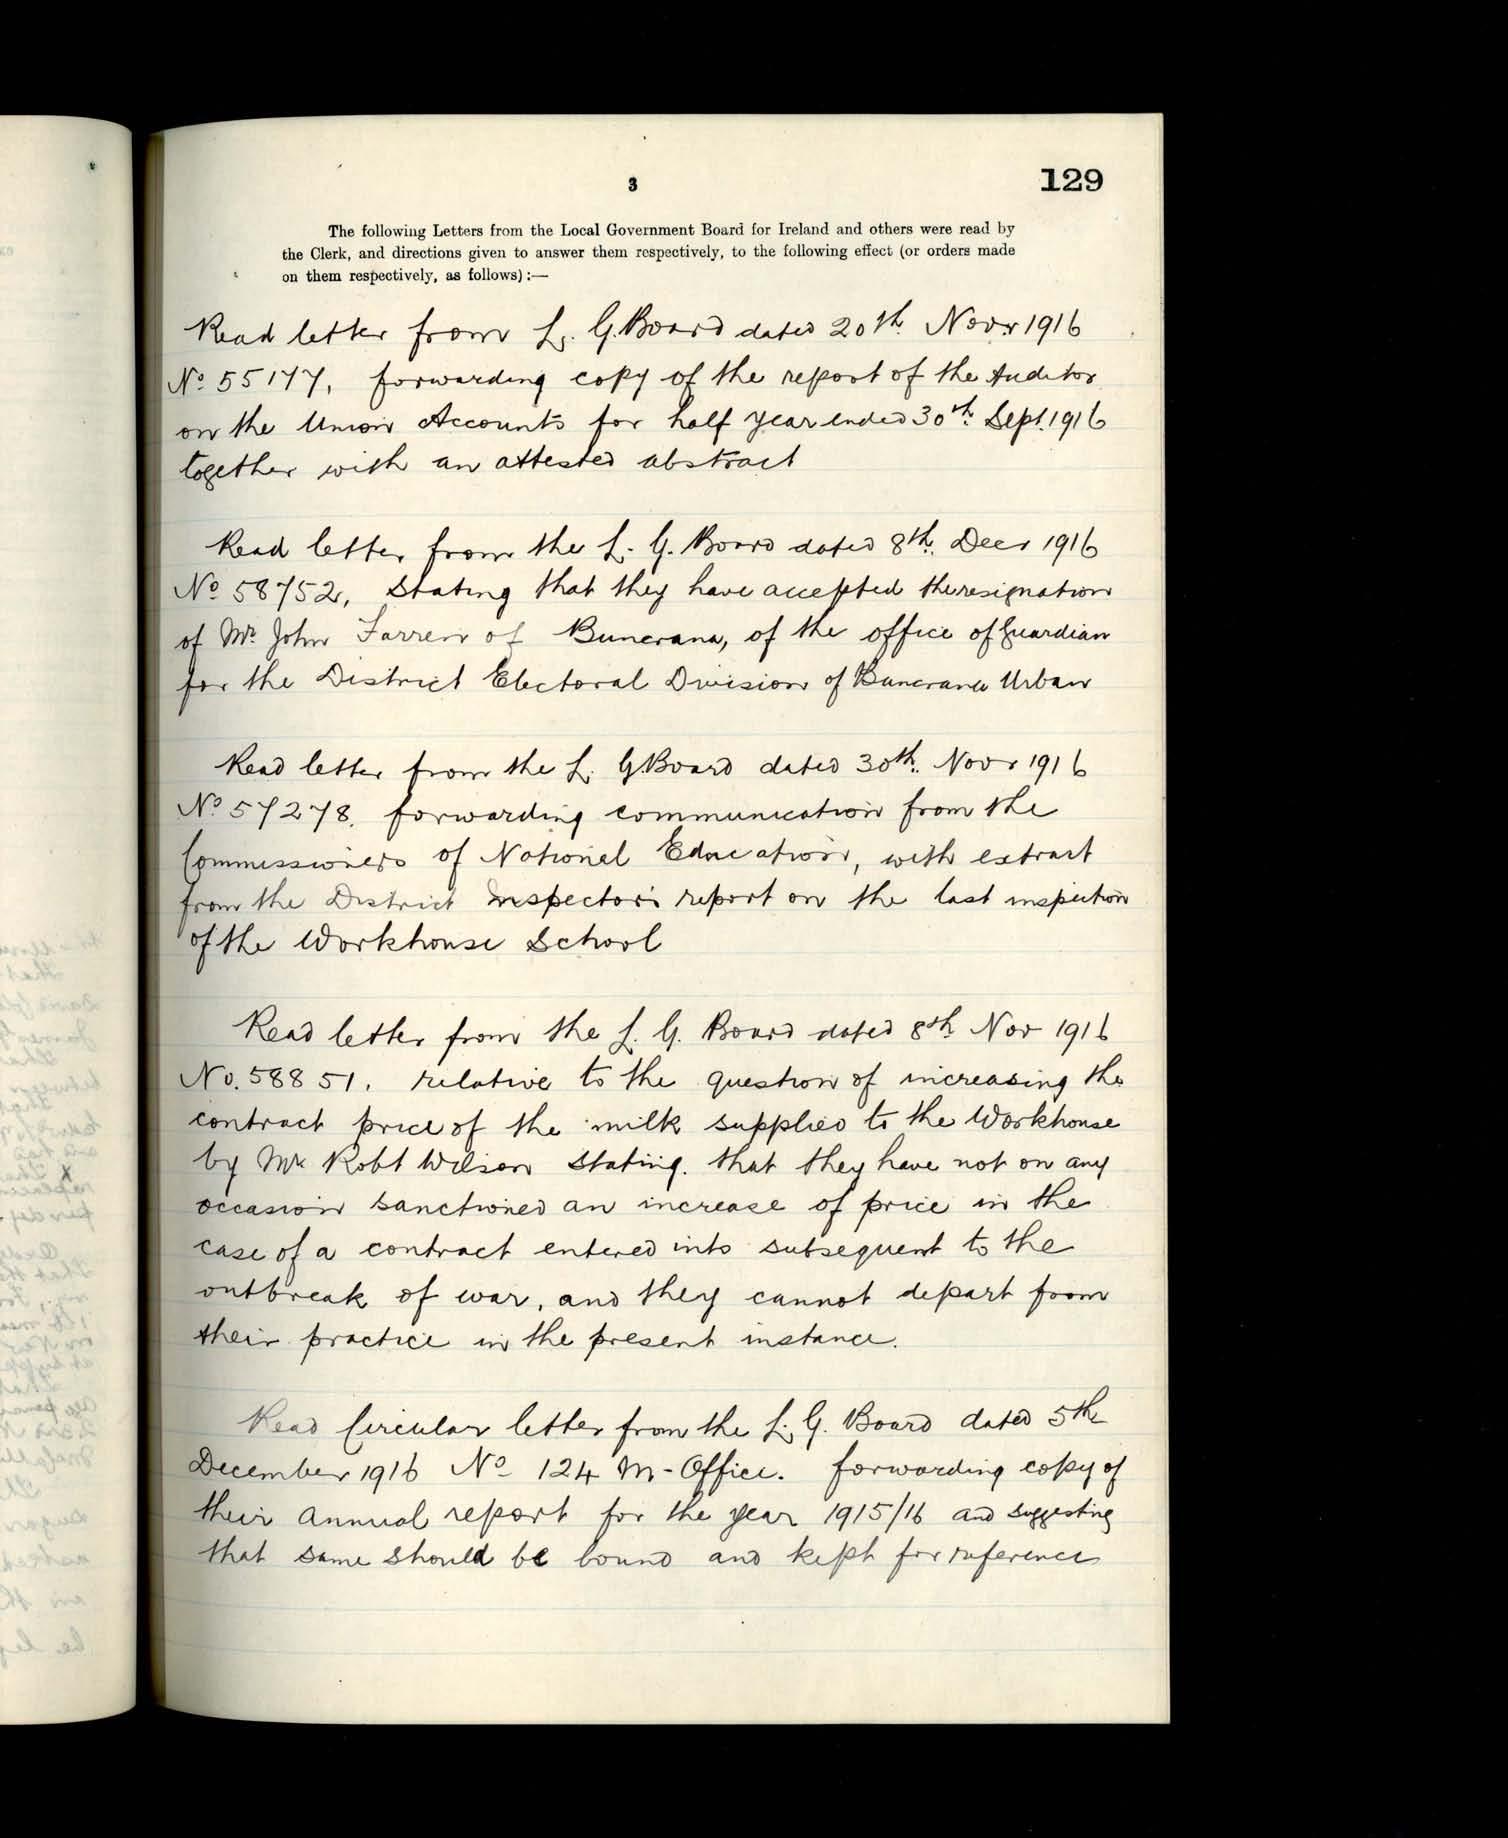 3
129
The following Letters from the Local Government Board for Ireland and others were read by
the Clerk, and directions given to answer them respectively, to the following effect (or orders made
on them respectively, as follows):—
Read letter from L. G. Board dated 20th. Novr 1916
No 55177, forwarding copy of the report of the Auditor
on the Union Accounts for half year ended 30th. Sept. 1916
together with an attested abstract
Read letter from the L. G. Board dated 8th. Decr 1916
No 58752, stating that they have accepted the resignation
of Mr John Farren of Buncrana, of the office of Guardian
for the District Electoral Division of Buncrana Urban
Read letter from the L. G. Board dated 30th. Novr 1916
No 57278. forwarding communication from the
Commissioners of National Education, with extract
from the District Inspector's report on the last inspection
of the Workhouse School
Read letter from the L. G. Board dated 8th Nov 1916
No. 58851. relative to the question of increasing the
contract price of the milk supplied to the Workhouse
by Mr Robt Wilson stating. that they have not on any
occasion sanctioned an increase of price in the
case of a contract entered into subsequent to the
outbreak of war, and they cannot depart from
their practice in the present instance.
Read Circular letter from the L. G. Board dated 5th
December 1916 No 124 M-Office. forwarding copy of
their annual report for the year 1915/16 and suggesting
that same should be bound and kept for reference